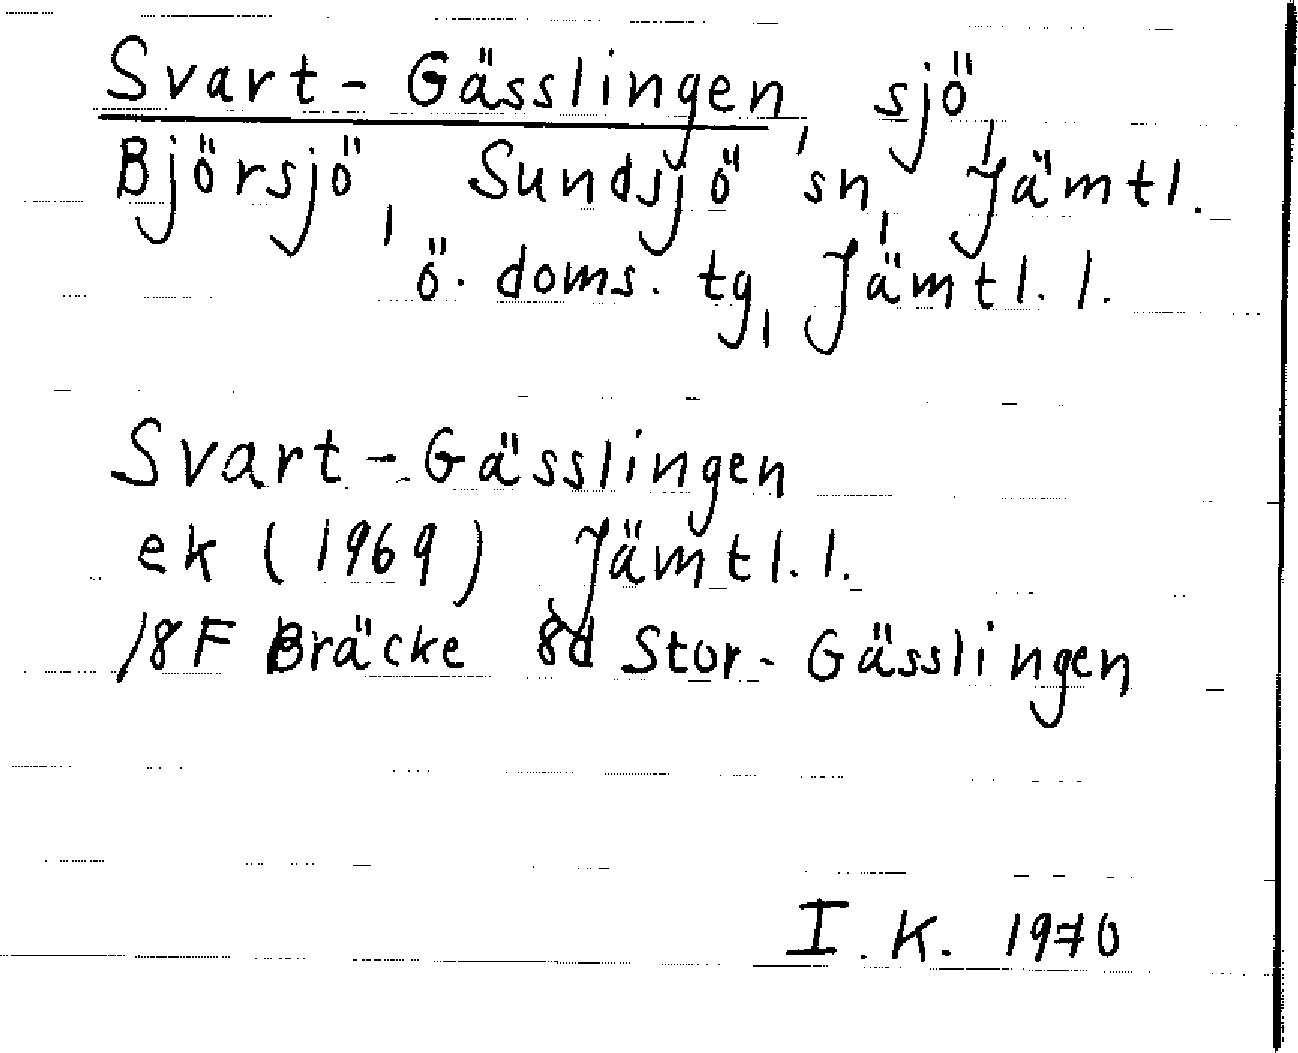 Svart-Gässlingen, sjö,
Björsjö, Sundsjö sn, Jämtl.
ö. doms. tg, Jämtl. l.
Svart-Gässlingen
ek (1969) Jämtl. l.
18F Bräcke 8d Stor-Gässlingen
I. K. 1970